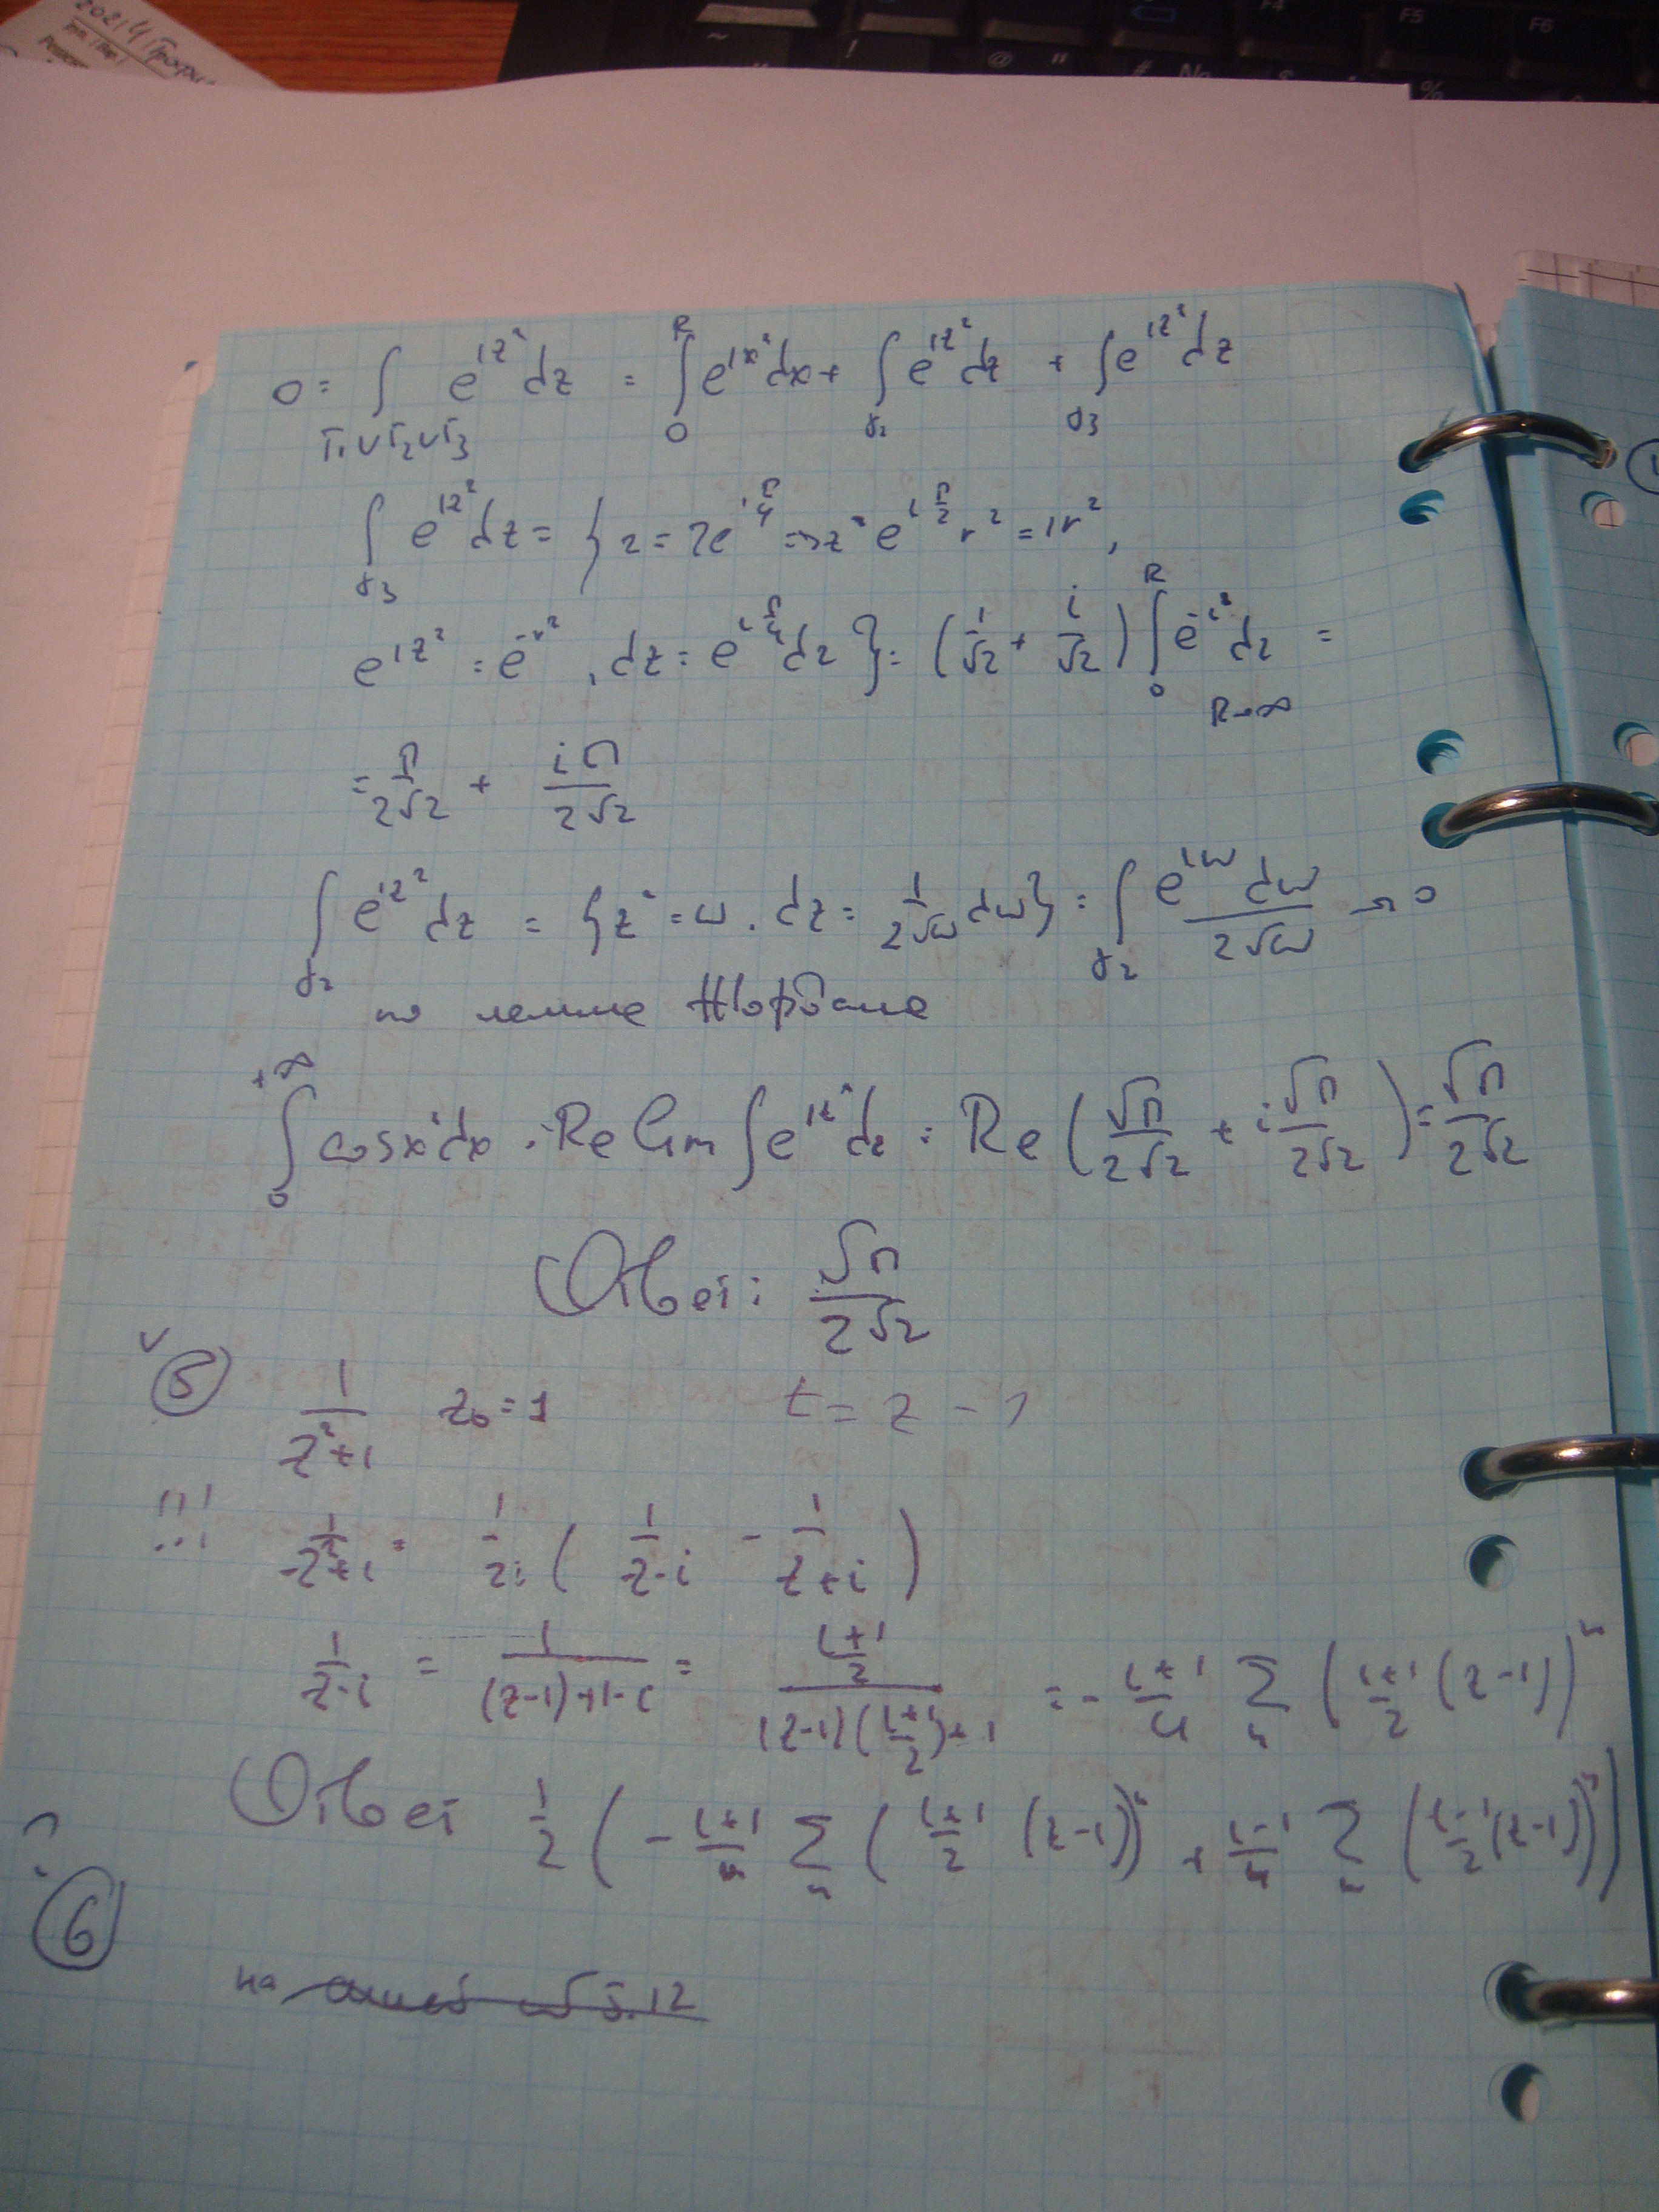 2021
0 = ∫ e^{iz²} dz = ∫ e^{ix²} dx + ∫ e^{iz²} dz + ∫ e^{iz²} dz
Γ₁∪Γ₂∪Γ₃ 0 R γ₂ γ₃
∫_{γ₃} e^{iz²} dz = { z = re^{iπ/4} => z² e^{iπ/2} r² = ir²,
e^{iz²} = e^{-r²}, dz = e^{iπ/4} dr } = (1/√2 + i/√2) ∫_0^R e^{-r²} dr =
R→∞
= π/2√2 + iπ/2√2
∫_{γ₂} e^{iz²} dz = { z² = ω, dz = 1/2√ω dω } = ∫_{γ₂} e^{iω} dω/2√ω → 0
по лемме Жордана
∫_0^{+∞} cos x² dx = Re lim ∫ e^{iz²} dz = Re (√π/2√2 + i √π/2√2) = √π/2√2
Ответ: √π/2√2
v
⑤ 1/z²+1 z₀ = 1 t = z - 1
!!! 1/z²+1 = 1/2i ( 1/z-i - 1/z+i )
1/z-i = 1/(z-1)+1-i = (i+1/2)/((z-1)(i+1/2)+1) = - i+1/4 Σ_n (i+1/2 (z-1))^n
Ответ 1/2 ( - i+1/4 Σ_n (i+1/2 (z-1))^n + i-1/4 Σ_n (i-1/2 (z-1))^n )
?
⑥
на
5.12
F4 F5 F6
~ ! @ " # № $ %